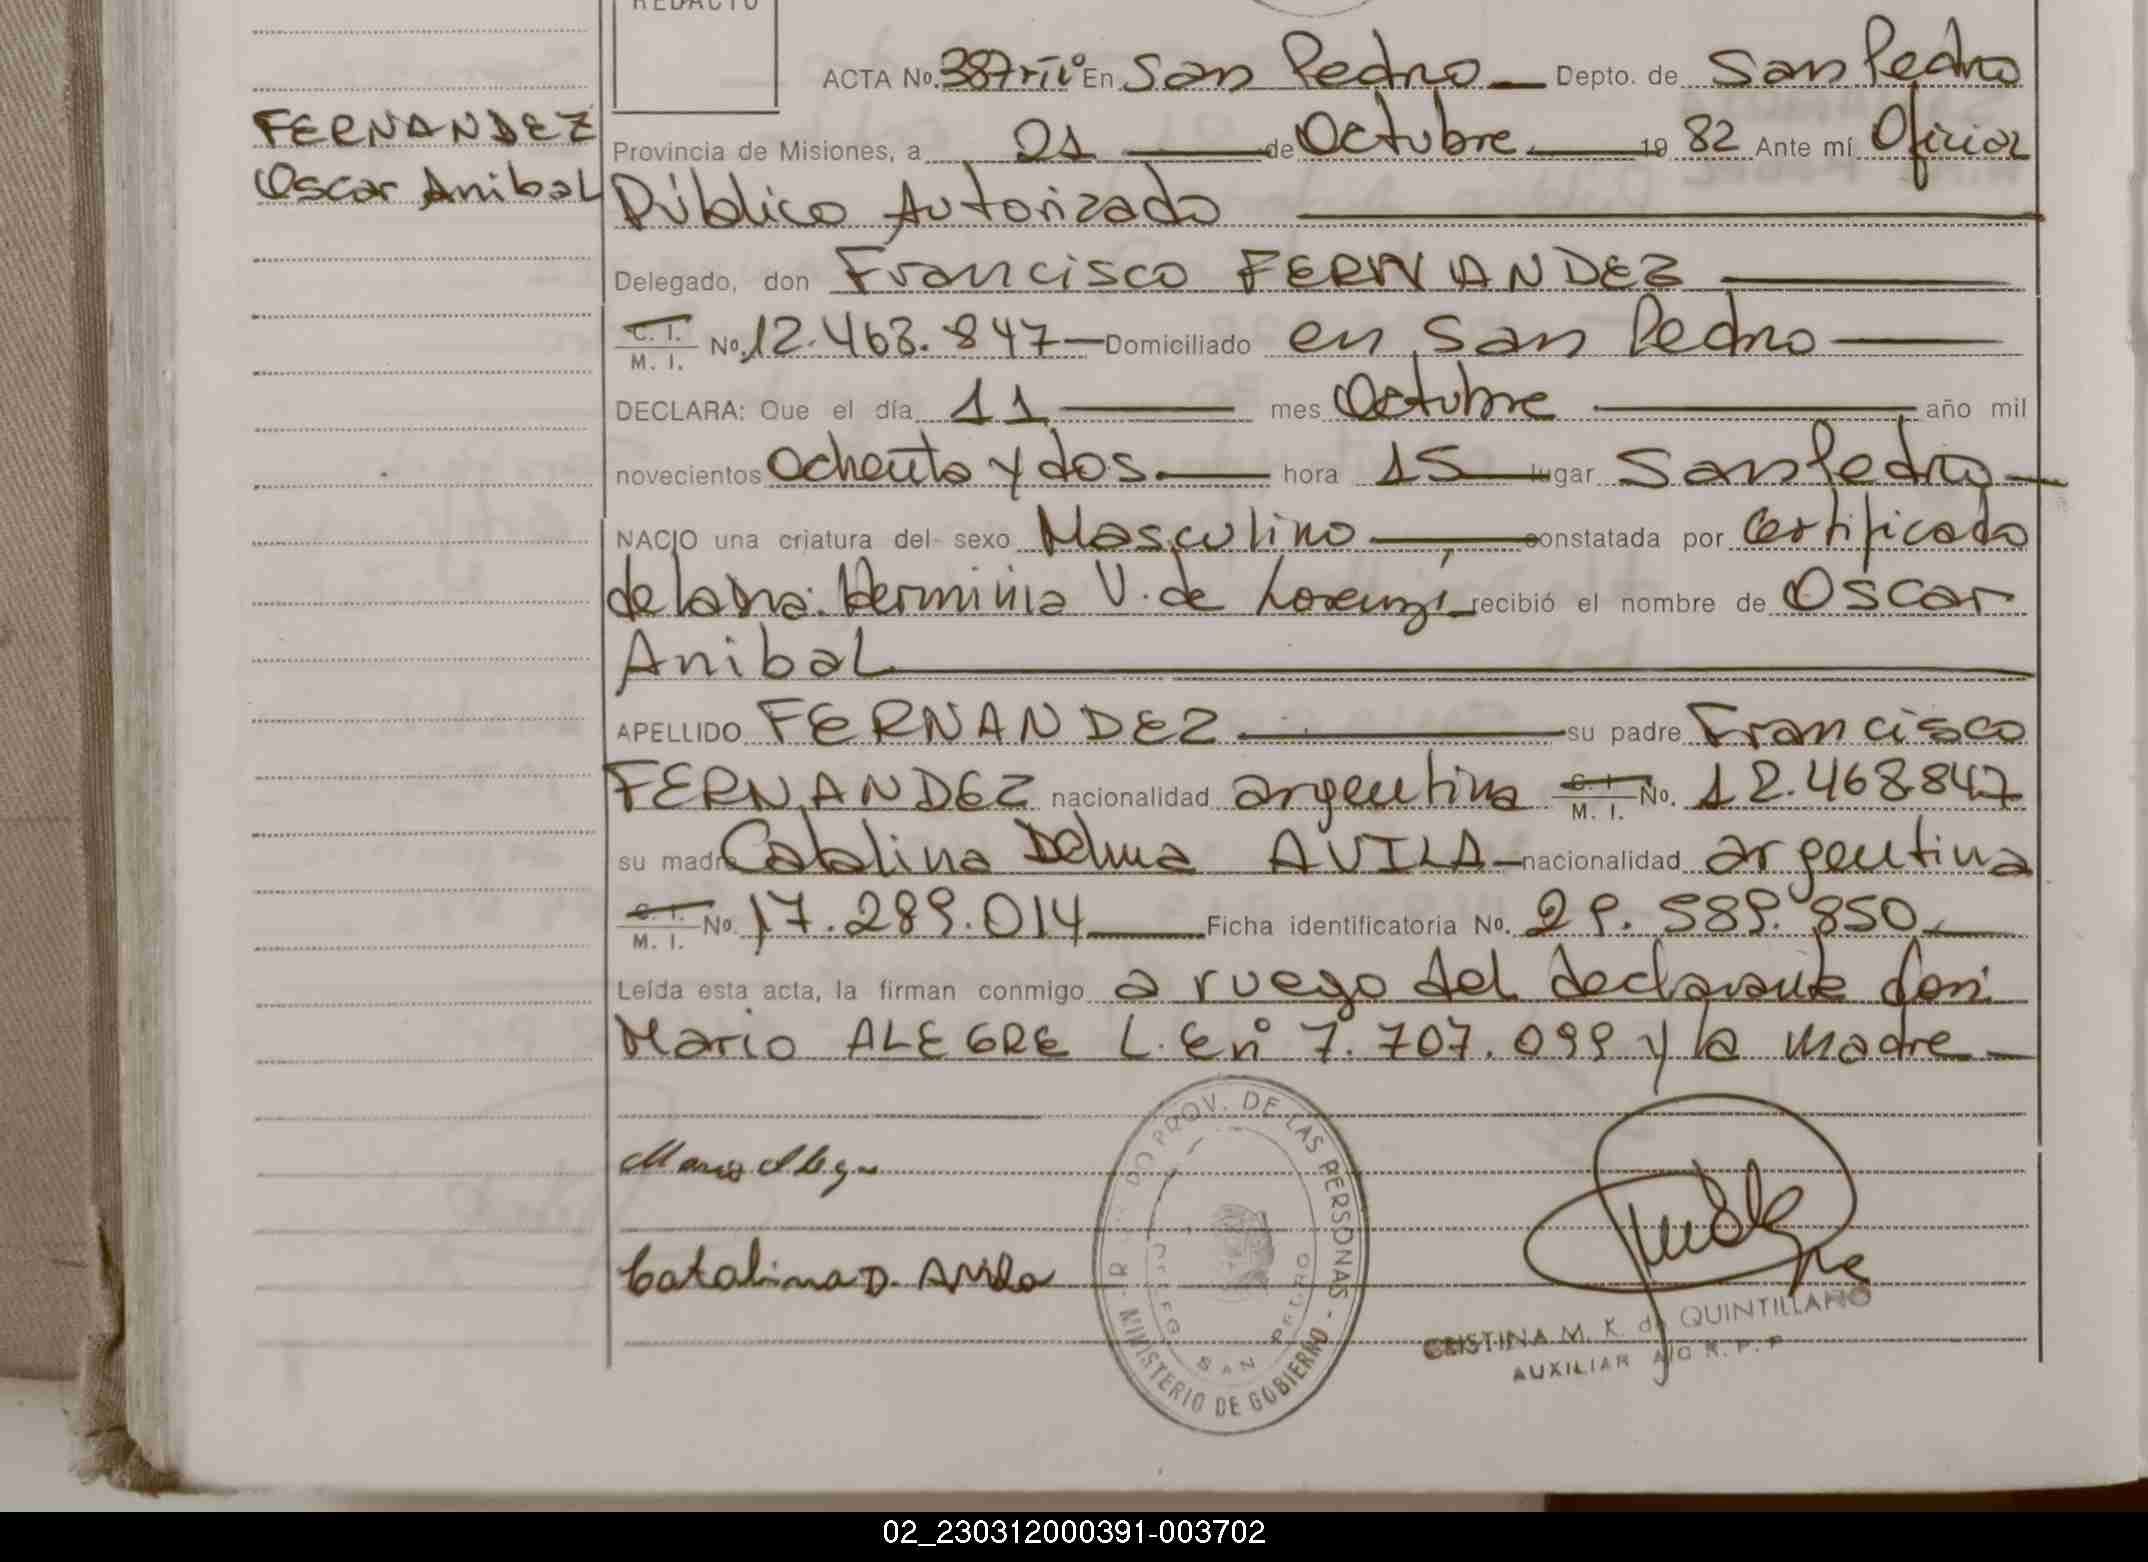 REDACTO
ACTA No. 387 En San Pedro Depto. de San Pedro
FERNANDEZ
Oscar Anibal
Provincia de Misiones, a 21 de Octubre 19 82 Ante mí Oficial
Público Autorizado
Delegado, don Francisco FERNANDEZ
C. I.
M. I. No. 12.468.847 Domiciliado en San Pedro
DECLARA: Que el día 11 mes Octubre año mil
novecientos Ochenta y dos. hora 15 lugar San Pedro
NACIO una criatura del sexo Masculino constatada por Certificado
de la Dra. Herminia V. de Lorenzi recibió el nombre de Oscar
Anibal
APELLIDO FERNANDEZ su padre Francisco
FERNANDEZ nacionalidad argentina C. I. M. I. No. 12.468.847
su madre Catalina Delma AVILA nacionalidad argentina
C. I. M. I. No. 17.289.014 Ficha identificatoria No. 29.589.850
Leída esta acta, la firman conmigo a ruego del declarante don
Mario ALEGRE L.E nº 7.707.099 y la madre
Mario Alegre
Catalina D. Avila
PROV. DE LAS PERSONAS - MINISTERIO DE GOBIERNO
SAN PEDRO
CRISTINA M. K. de QUINTILLANO
AUXILIAR A/C R. P. P
02_230312000391-003702